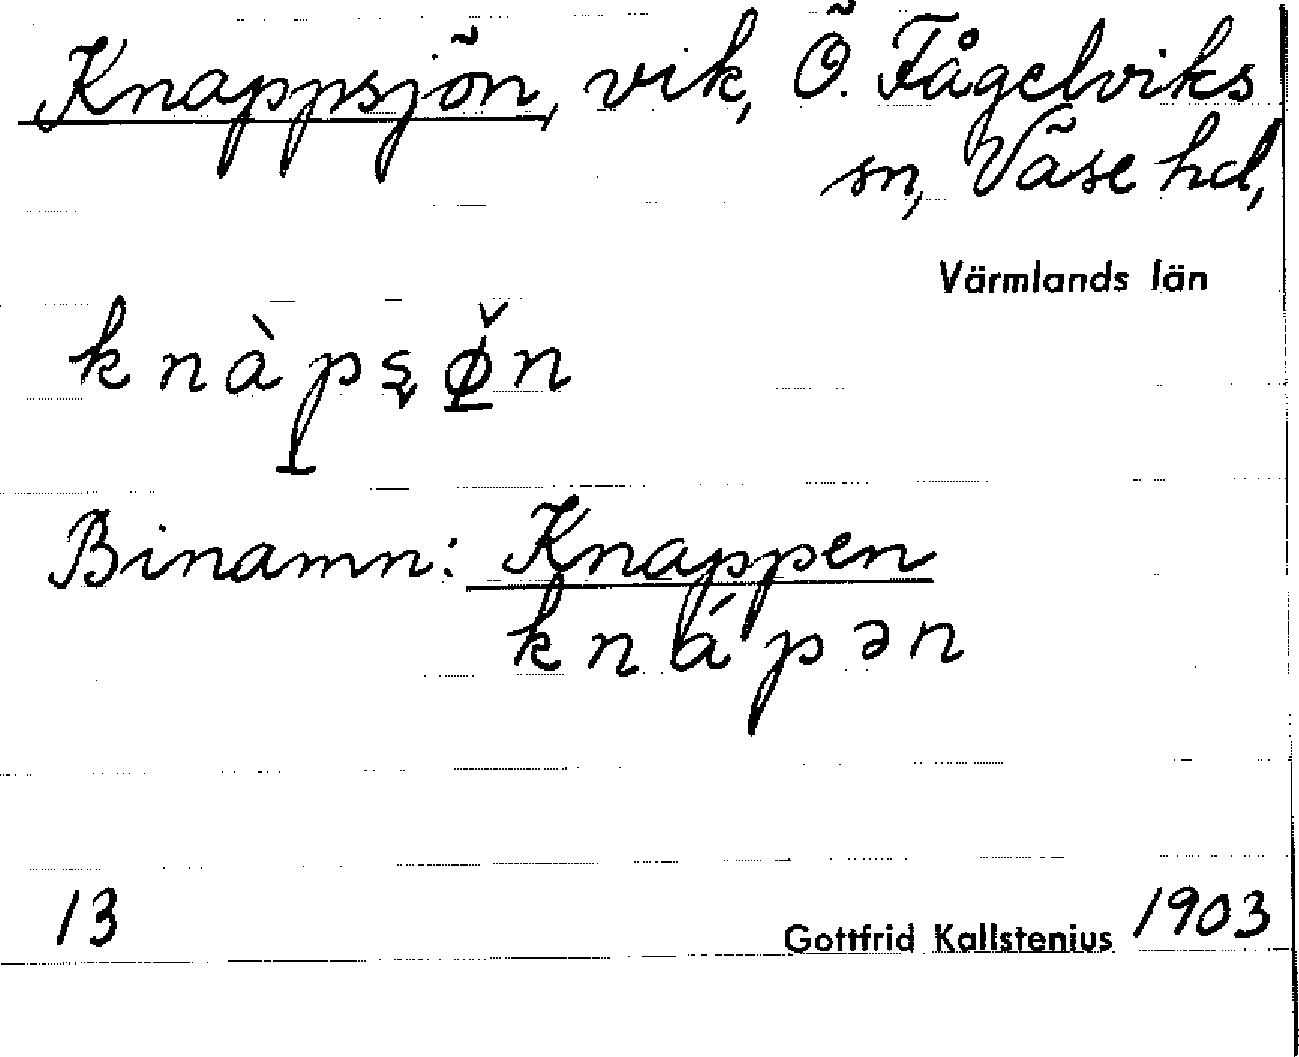 Knappsjön, vik, Ö. Fågelviks
sn, Väse hd,
Värmlands län
knàpʂø̌n
Binamn: Knappen
knápən
13 Gottfrid Kallstenius 1903